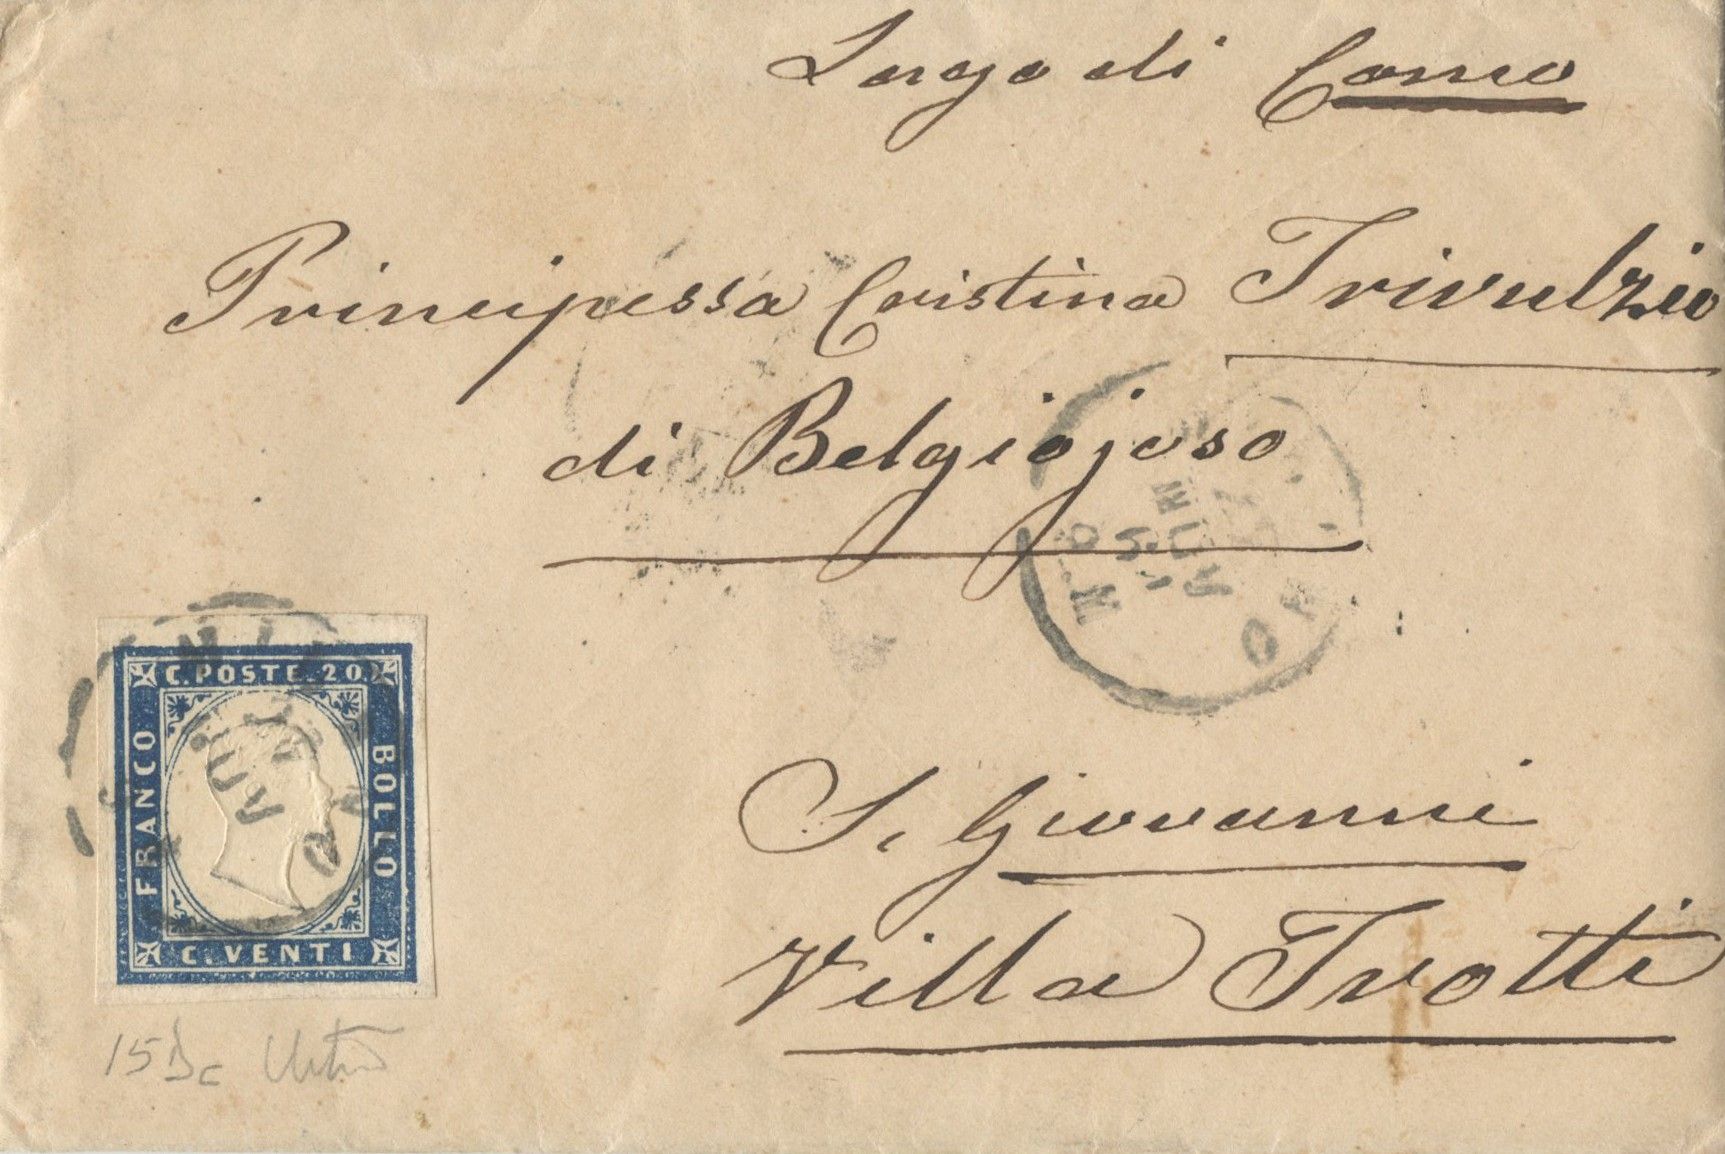 Lago di Como
Principessa Cristina Trivulzio
di Belgiojoso
C. POSTE. 20.
FRANCO
BOLLO
C. VENTI
S. Giovanni
Villa Trotti
15Dc